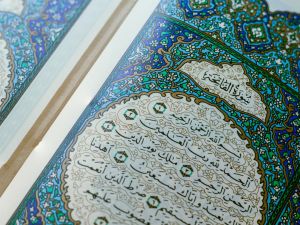 سُورَةُ الْفَاتِحَةِ
بِسْمِ اللَّهِ الرَّحْمَٰنِ الرَّحِيمِ
الْحَمْدُ لِلَّهِ رَبِّ الْعَالَمِينَ
الرَّحْمَٰنِ الرَّحِيمِ مَالِكِ يَوْمِ الدِّينِ
نَعْبُدُ وَإِيَّاكَ نَسْتَعِينُ اهْدِنَا
صِرَاطَ الَّذِينَ أَنْعَمْتَ
عَلَيْهِمْ